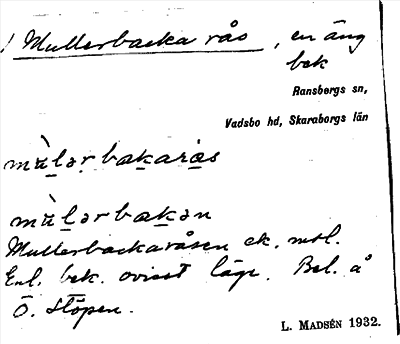 ! Mullerbacka rås, en äng
bek
Ransbergs sn,
Vadsbo hd, Skaraborgs län
mùlər bakarås
mùlərbakən
Mullerbackaråsen ek. mtl.
Enl. bek. ovisst läge. Bel. å
Ö. Stöpen.
L. MADSÉN 1932.